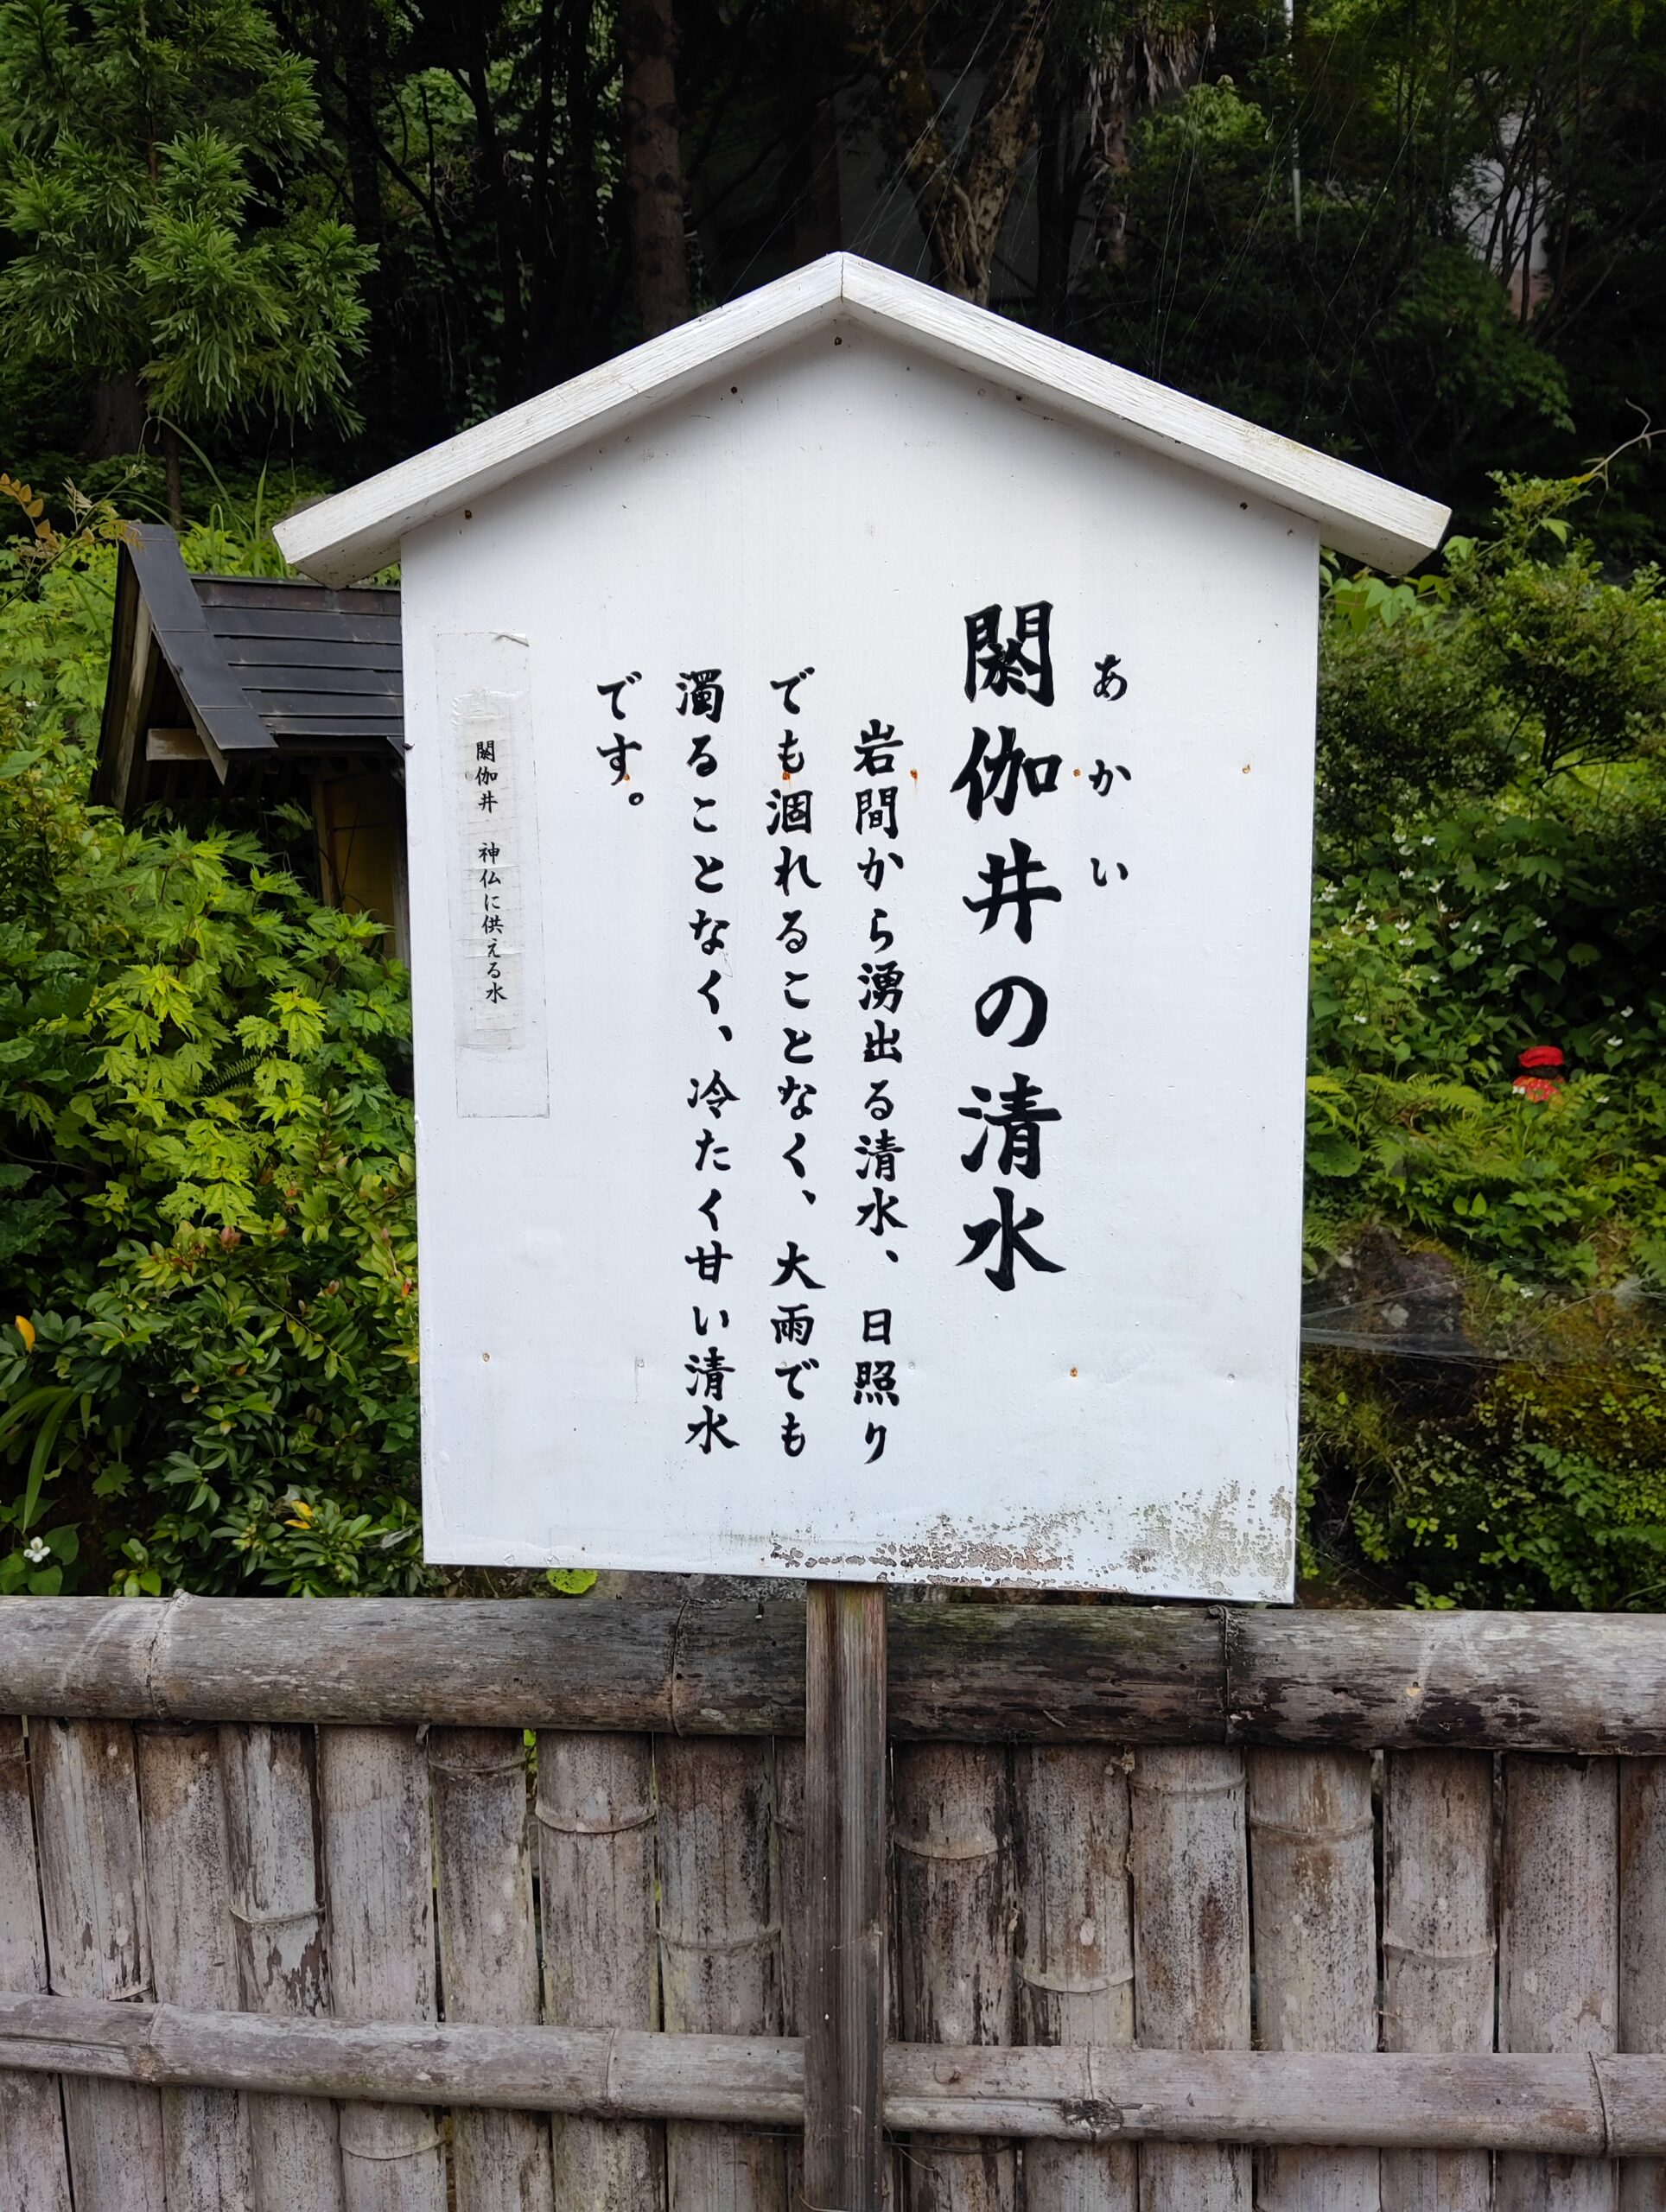 あかい
閼伽井の清水
岩間から湧出る清水、日照り
でも涸れることなく、大雨でも
濁ることなく、冷たく甘い清水
です。
閼伽井 神仏に供える水